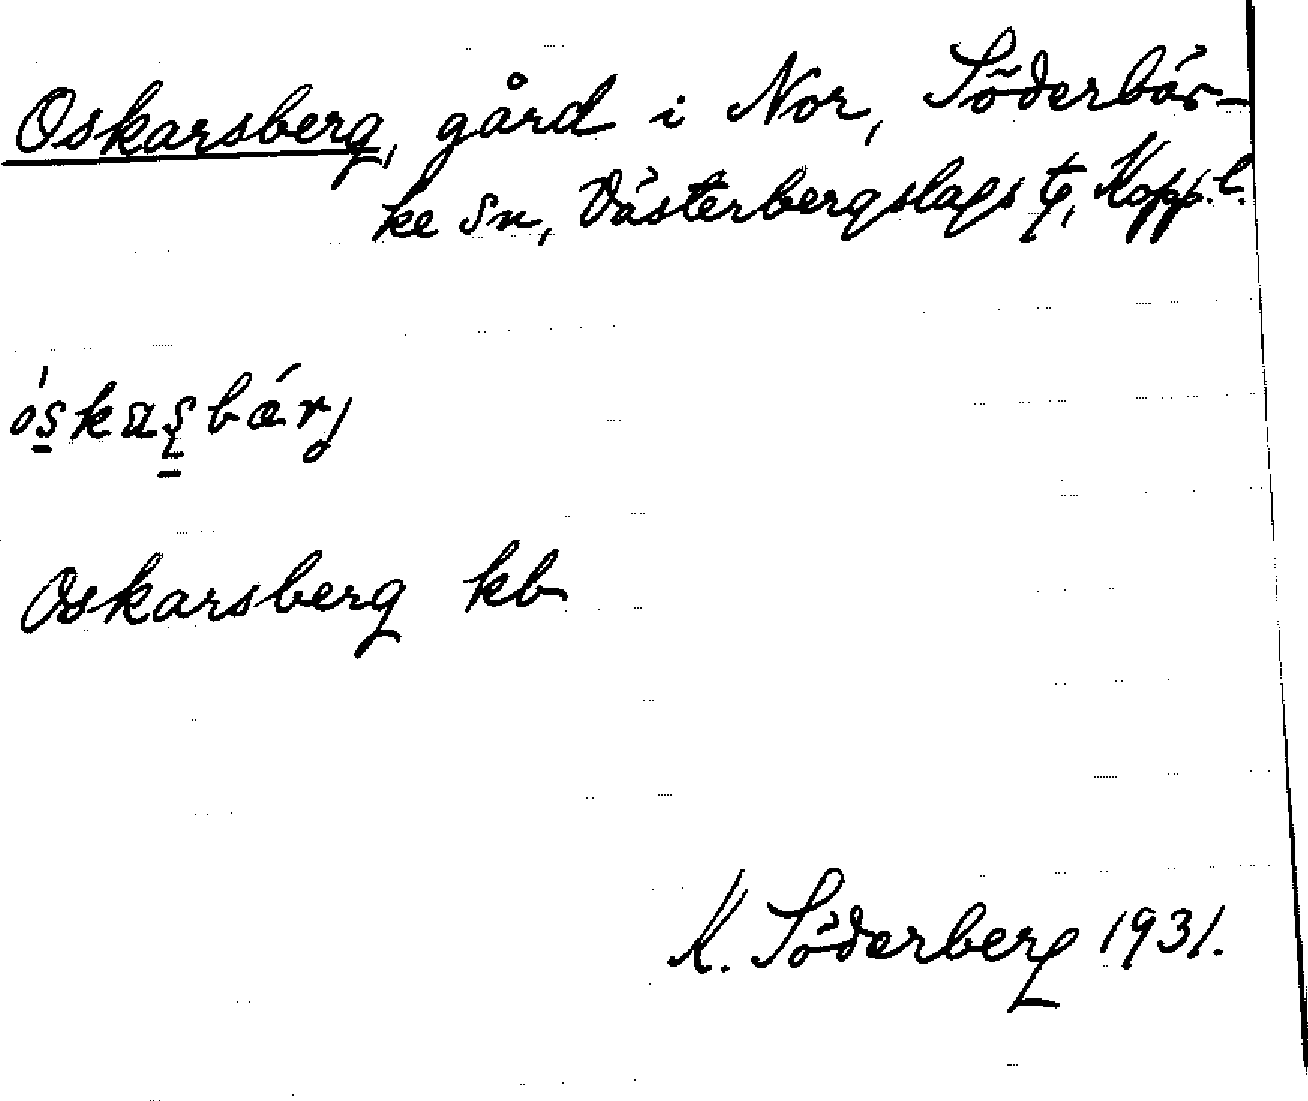 Oskarsberg, gård i Nor, Söderbär-
ke sn, Västerbergslags tg, Kopp. l.
Oskarsberg kb
K. Söderberg 1931.